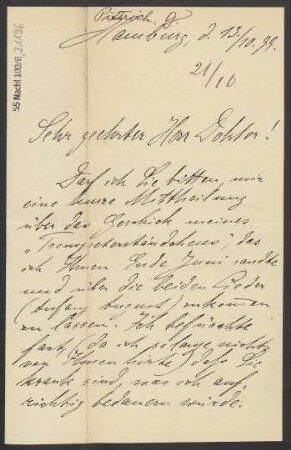 55 Nachl 100/B, 3, 1196
Hamburg, d. 13/10. 99.
21/10
Sehr geehrter Herr Doktor!
Darf ich Sie bitten, mir
eine kurze Mittheilung
über das Geschick meines
„Trompeterständchens", das
ich Ihnen Ende Juni sandte
und über die beiden Lieder
(Anfang August) zukommen
zu lassen. Ich befürchte
fast, (da ich so lange nichts
von Ihnen hörte) daß Sie
krank sind, was ich auf-
richtig bedauern würde.